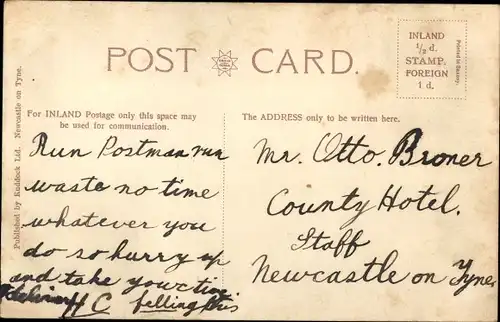 POST CARD.
INLAND
½ d.
STAMP.
FOREIGN
1 d.
Printed in Saxony.
Published by Ruddock Ltd. Newcastle on Tyne.
For INLAND Postage only this space may
be used for communication.
The ADDRESS only to be written here.
Run Postman run
waste no time
whatever you
do so hurry up
and take your time
C felling this
Mr. Otto. Broner
County Hotel.
Staff
Newcastle on Tyne.